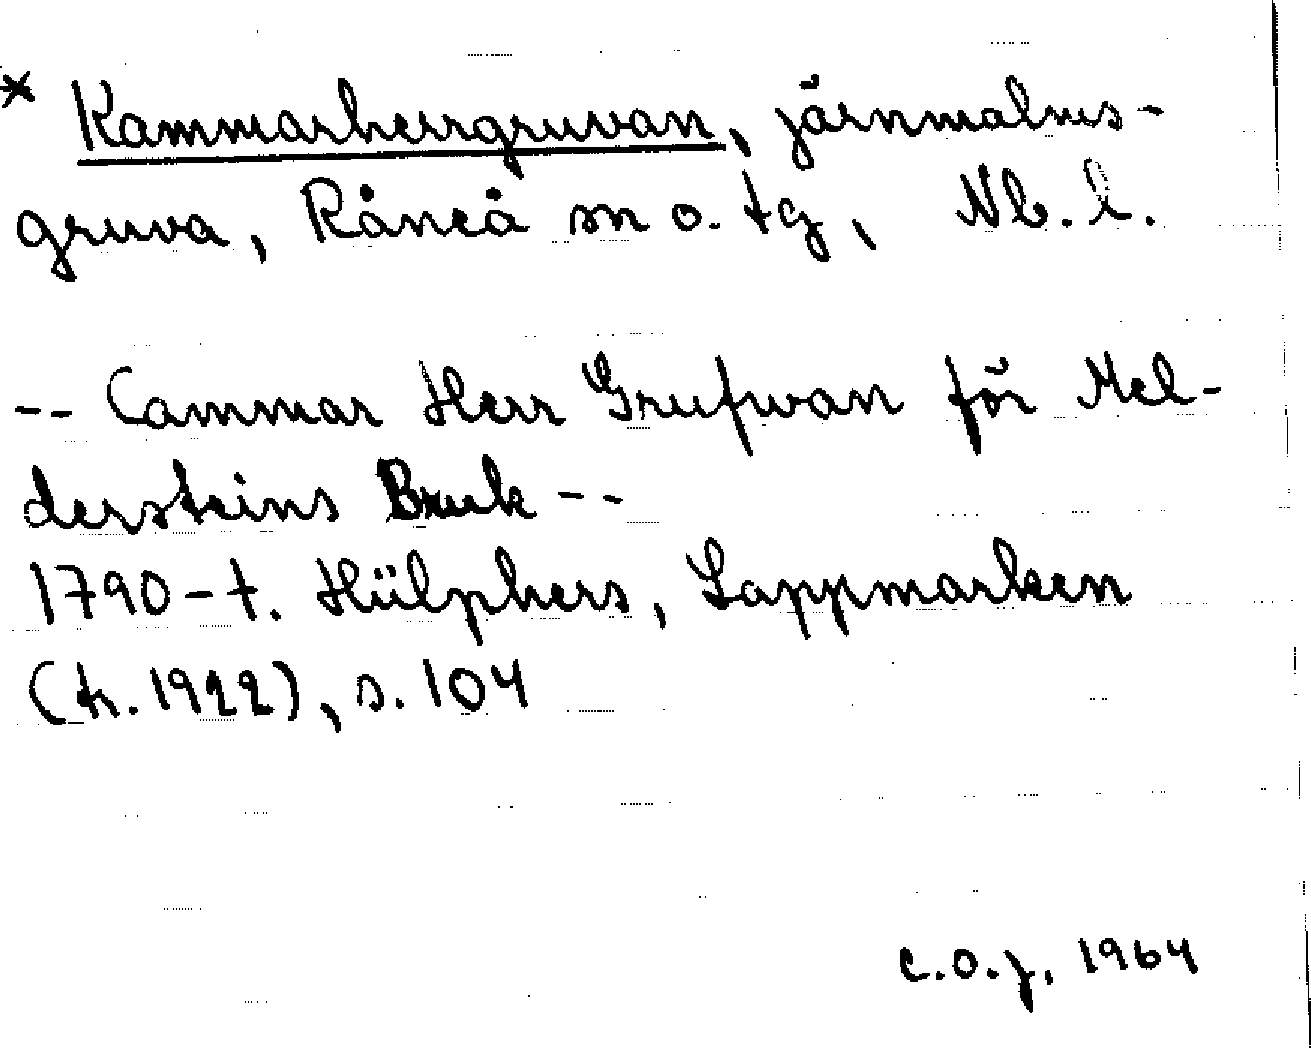 * Kammarherrgruvan, järnmalms-
gruva, Råneå sn o. tg, Nb. l.
-- Cammar Herr Grufwan för Mel-
dersteins Bruk --
1790-t. Hülphers, Lappmarken
(tr. 1922), s. 104
C.O.J. 1964